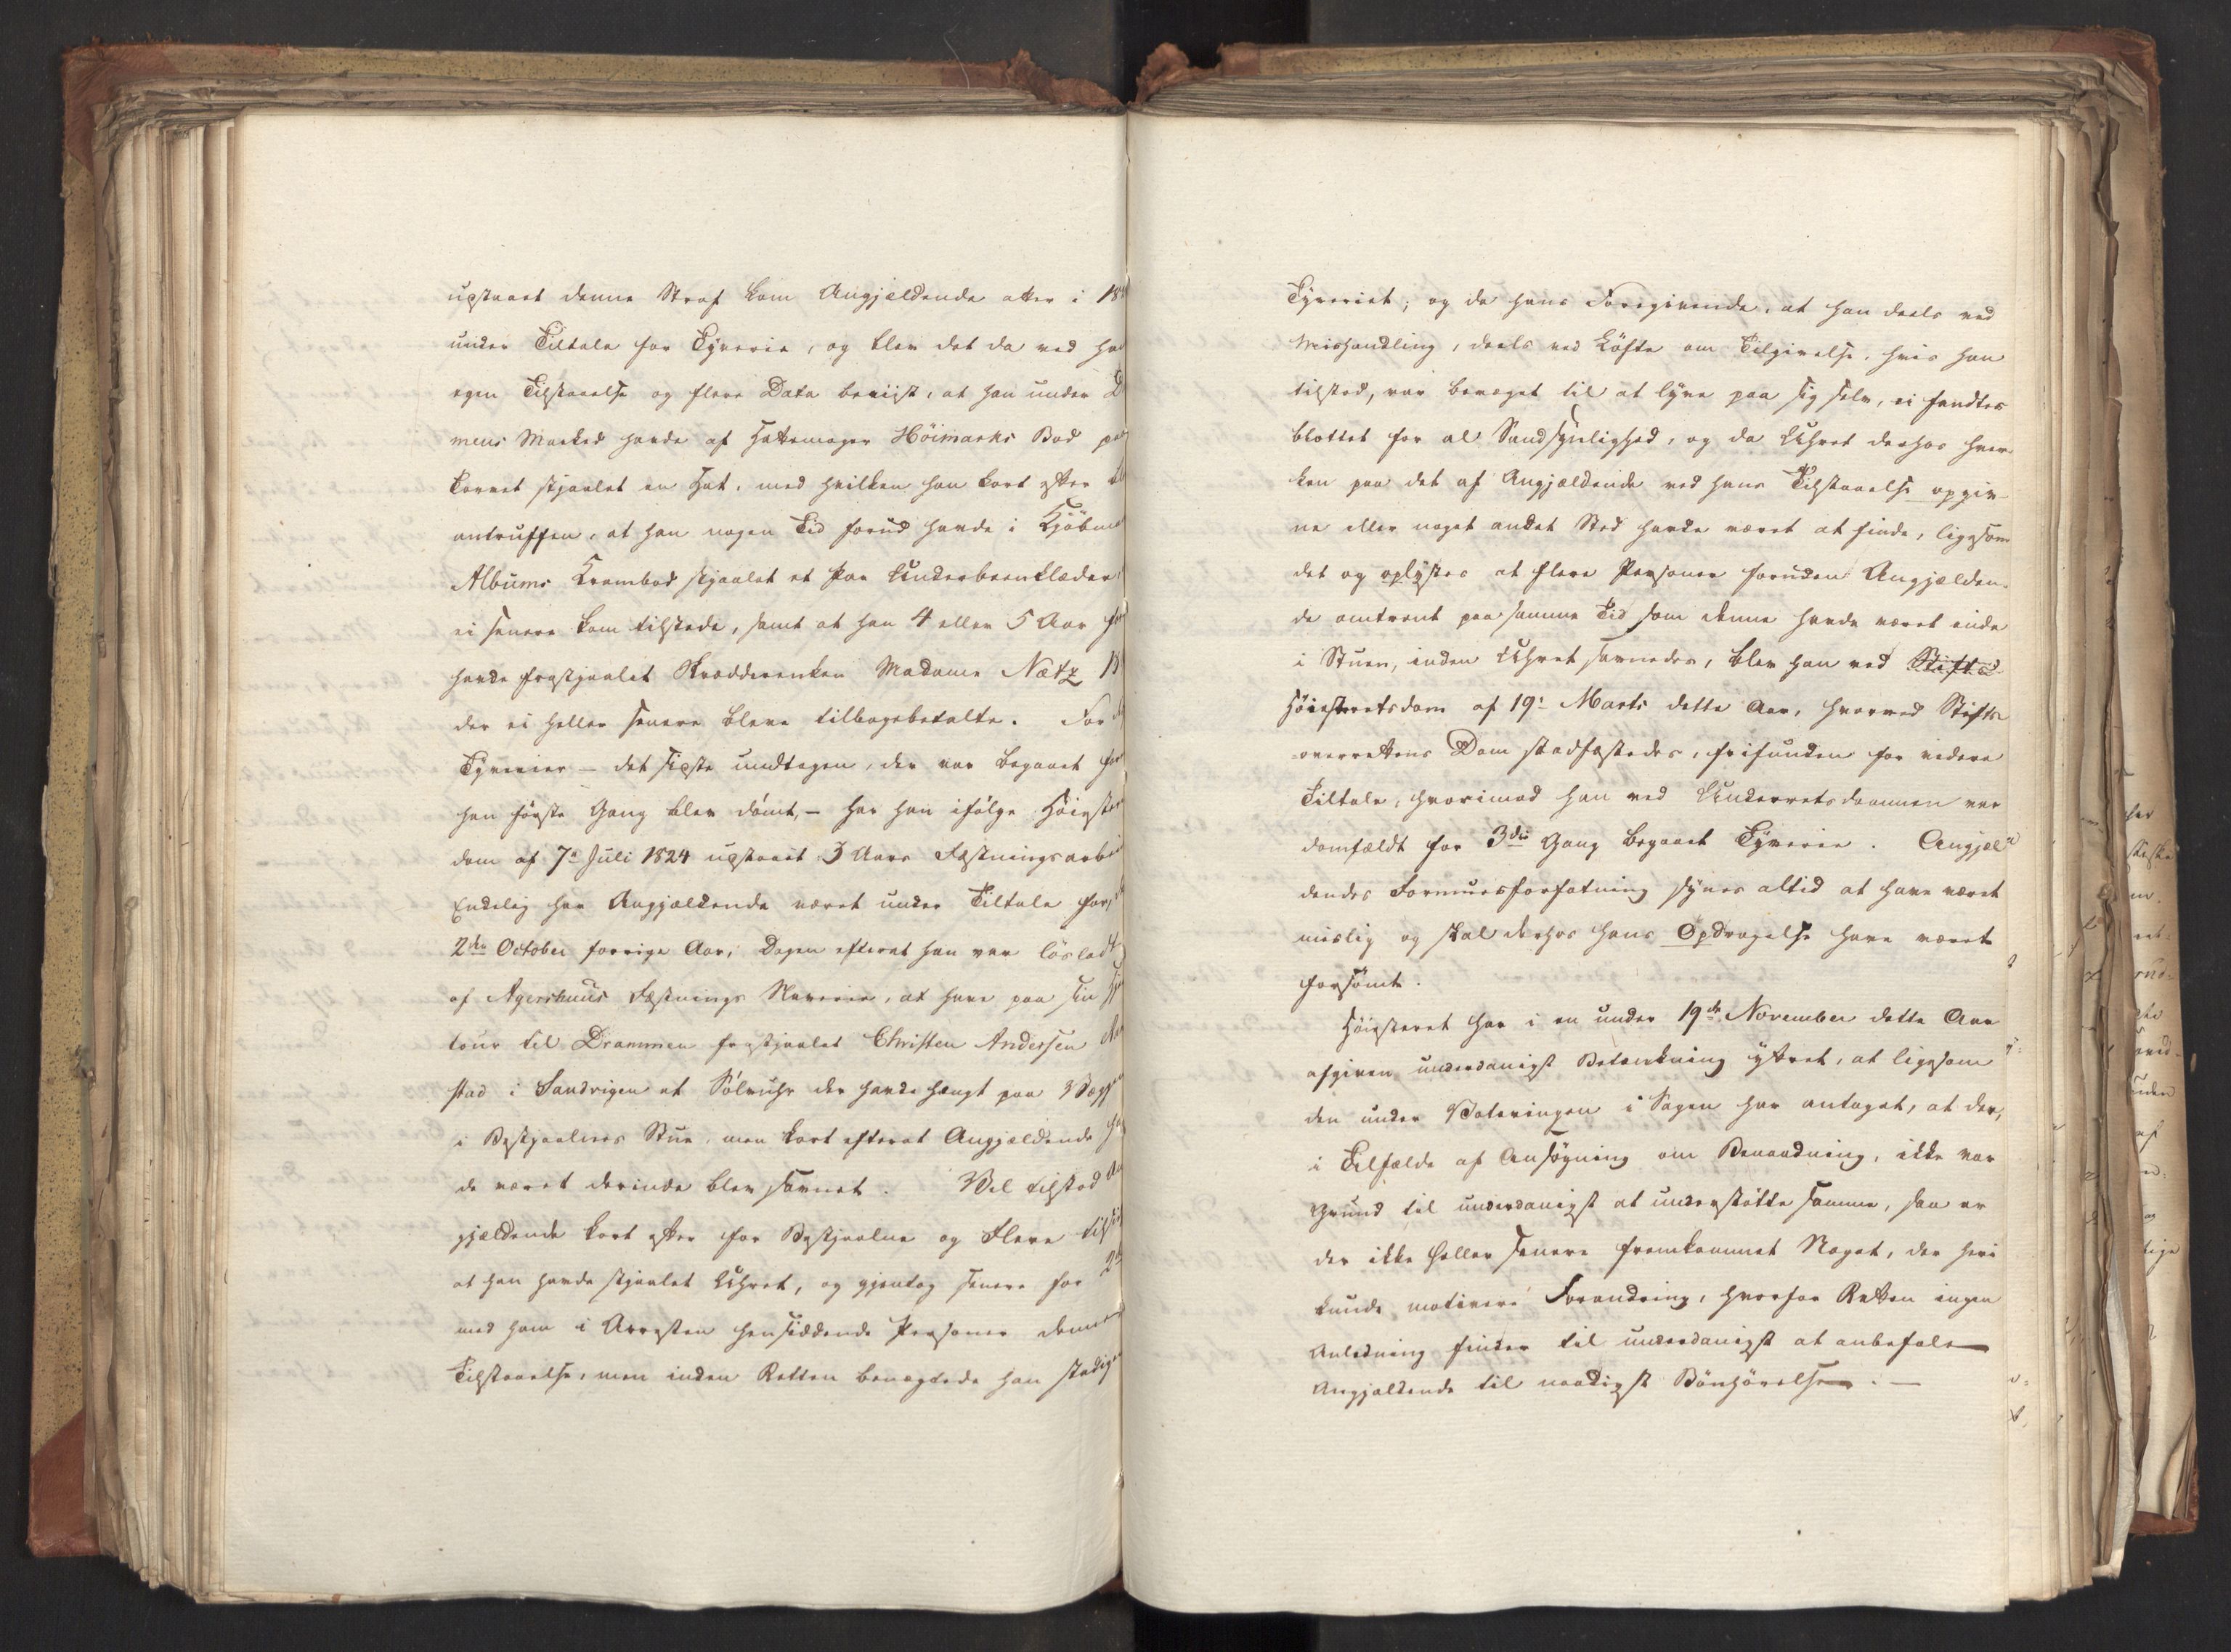 upstaaet denne Straf kom Angjældende atter i 18
under Tiltale for Tyverie, og blev det da ved ha
egen Tilstaaelse og flere Data beviist, at han under D
mens Marked havde af Hattemager Höimarks Bod paa
Torvet stjaalet en Hat, med hvilken han kort efter bl
antruffen, at han nogen Tid forud havde i Kjöbma
Albums Krambod stjaalet et Par Underbeenklæder,
ei senere kom tilstede, samt at han 4 eller 5 Aar for
havde frastjaalet Skrædderenken Madame Nætz 18
der ei heller senere bleve tilbagebetalte. For di
Tyverier – det sidste undtagen, der var begaaet før
han første Gang blev dömt, – har han ifölge Höieste
dom af 7de Juli 1824 upstaaet 3 Aars Fæstningsarbei
Endelig har Angjældende været under Tiltale for,
2den October forrige Aar, Dagen efterat han var lösladt
af Agershuus Fæstnings Slaverie, at have paa sin Hje
tour til Drammen frastjaalet Christen Andersen
stad i Sandvigen et Sölvuhr der havde hængt paa Vægge
i Bestjaalnes Stue, men kort efterat Angjældende ha
de været derinde blev savnet. Vel tilstod An
gjældende kort efter for Bestjaalne og Flere
at han havde stjaalet Uhret, og gjentog senere for 2de
med ham i Arresten hensiddende Personer denne
Tilstaaelse, men inden Retten benægtede han stadigen
Tyveriet; og da hans Foregivende, at han deels ved
Mishandling, deels ved Löfte om Tilgivelse, hvis han
tilstod, var bevæget til at lyve paa sig selv, ei fandtes
blottet for al Sandsynlighed, og da Uhret derhos hver-
ken paa det af Angjældende ved hans Tilstaaelse opgiv-
ne eller noget andet Sted havde været at finde, ligesom
det og oplystes at flere Personer foruden Angjælden-
de omtrent paa samme Tid som denne havde været inde
i Stuen, inden Uhret savnedes, blev han ved Stifts
Höiesteretsdom af 19de Marts dette Aar, hvorved Stifts
overrettens Dom stadfæstedes, frifunden for videre
Tiltale, hvorimod han ved Underretsdommen var
domfældt for 3die Gang begaaet Tyverie. Angjæl
dendes Formuesforfatning synes altid at have været
mislig og skal derhos hans Opdragelse have været
forsömt.
Höiesteret har i en under 19de November dette Aar
afgiven underdanigst Betænkning yttret, at ligesom
den under Voteringen i Sagen har antaget, at der,
i Tilfælde af Ansøgning om Benaadning, ikke var
Grund til underdanigst at understötte samme, saa er
der ikke heller senere fremkommet Noget, der heri
kunde motivere Forandring, hvorfor Retten ingen
Anledning finder til underdanigst at anbefale
Angjældende til naadigst Bönhörelse. –